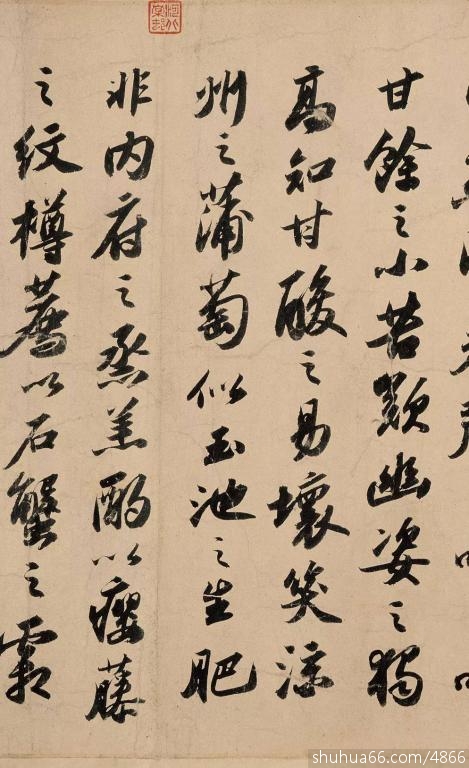 甘餘之小苦歎幽姿之獨
高知甘酸之易壞笑涼
州之蒲萄似玉池之生肥
非内府之蒸羔酌以癭藤
之紋樽薦以石蟹之霜
shuhua66.com/4866